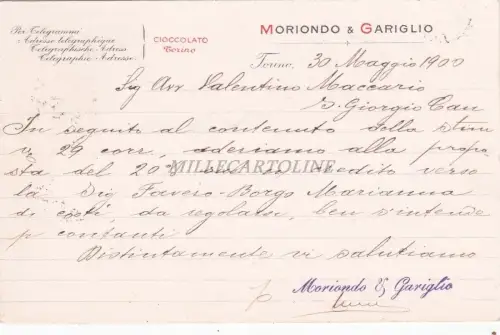 Per Telegrammi
Adresse télégraphique
Telegraphische Adress.
Telegraphic Adresse
CIOCCOLATO
Torino
MORIONDO & GARIGLIO
Torino, 30 Maggio 1900
Sig Avv Valentino Maccario
S. Giorgio Can
In seguito al contenuto della stim
v 29 corr. aderiamo alla propo
sta del 20% credito verso
la Sig Faveio-Borgo Marianna
di costì, da regolarsi, ben s'intende
p contanti
Distintamente vi salutiamo
p Moriondo & Gariglio
MILLECARTOLINE